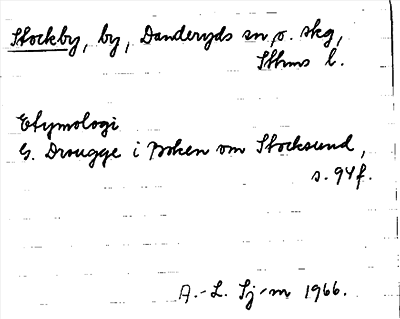 Stockby, by, Danderyds sn o. skg,
Sthms l.
Etymologi
G. Drougge i Boken om Stocksund,
s. 94 f.
A.-L. Sj-m 1966.